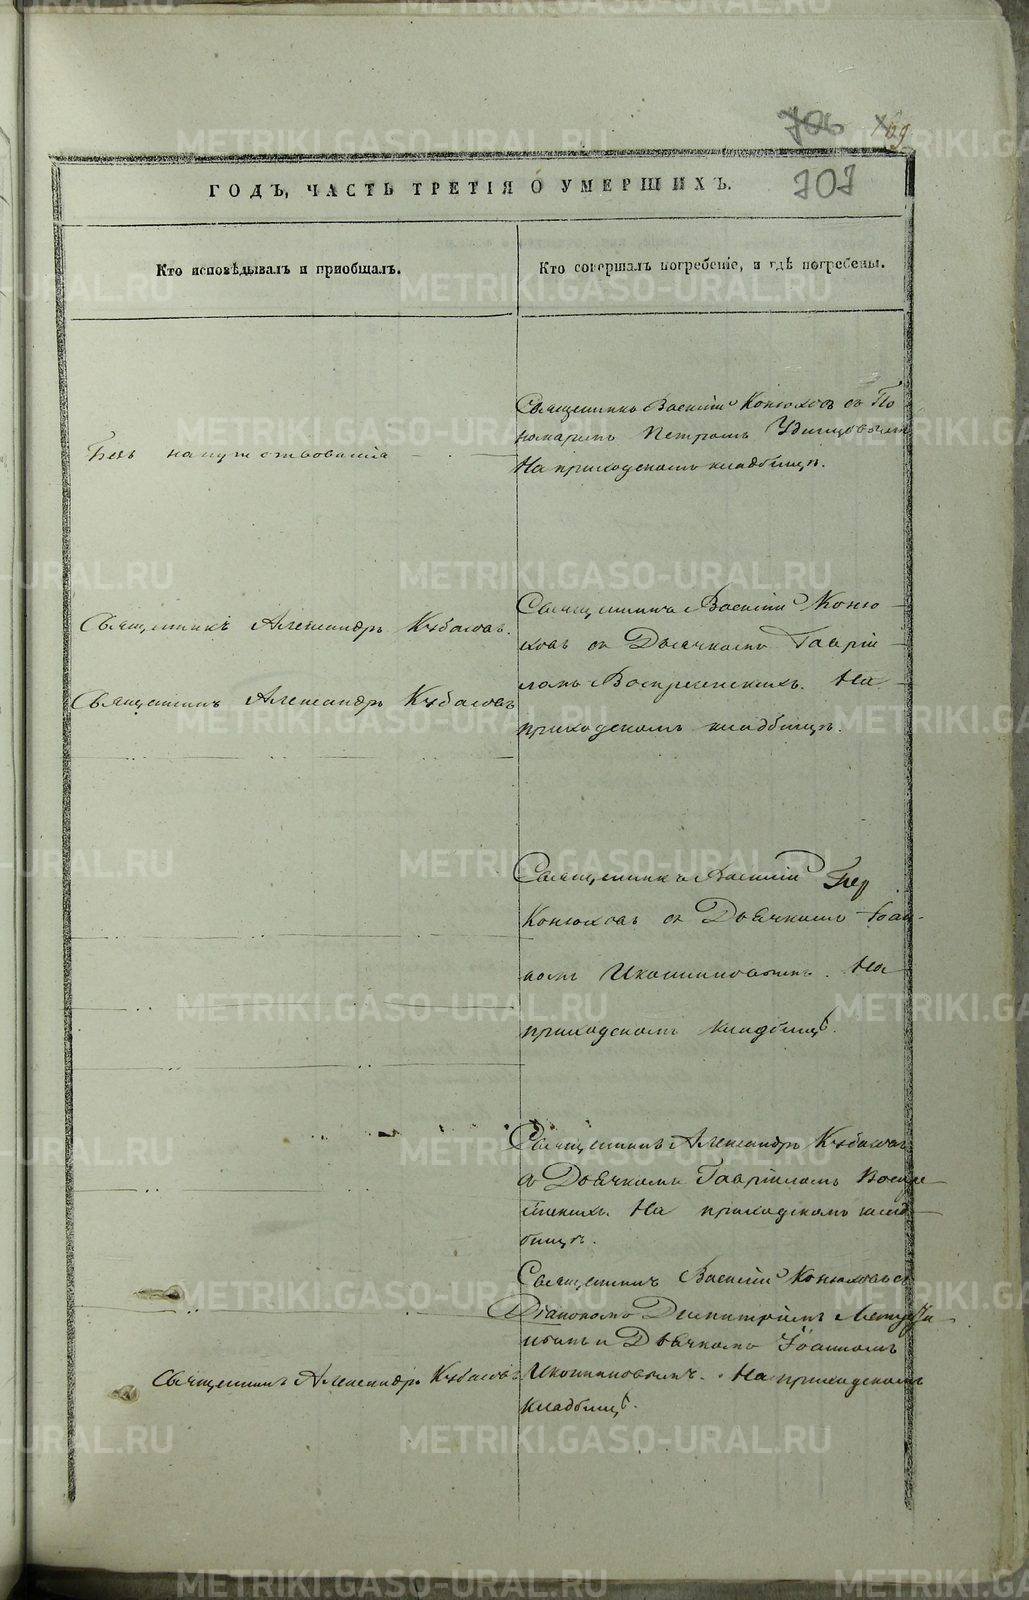 706
109
707
ГОДЪ, ЧАСТЬ ТРЕТІЯ О УМЕРШИХЪ.
Кто исповѣдывалъ и приобщалъ.
Кто совершалъ погребеніе, и гдѣ погребены.
Безъ напутствованія
Священникъ Василій Конюховъ съ По
номаремъ Петромъ Удинцовымъ
На приходскомъ кладбищѣ.
Священникъ Александръ Кубасовъ.
Священникъ Александръ Кубасовъ
Священникъ Василій Коню
ховъ съ Дьячкомъ Гаврій
ломъ Воскресенскихъ. На
приходскомъ кладбищѣ.
Священникъ Василій
Конюховъ съ Дьячкомъ Іоан-
номъ Иконниковымъ. На
приходскомъ кладбищѣ.
Священникъ Александръ Кубасовъ
съ Дьячкомъ Гавріиломъ Воскре
сенскихъ. На приходскомъ клад
бищѣ.
Священникъ Василій Конюховъ съ
Діакономъ Димитріемъ
и Дьячкомъ Іоанномъ
Иконниковымъ. На приходскомъ
кладбищѣ.
Священникъ Александръ Кубасовъ
METRIKI.GASO-URAL.RU